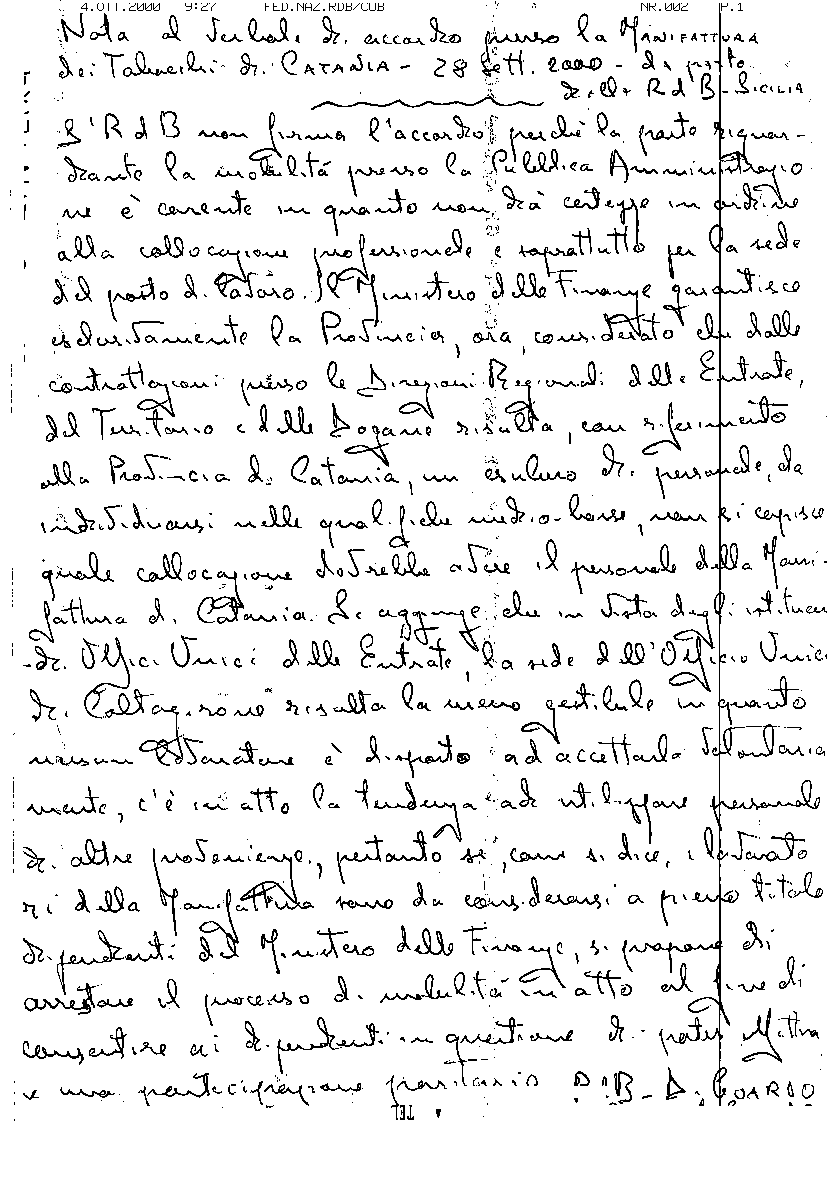 4.OTT.2000 9:27 FED.NAZ.RDB/CUB NR.002 P.1
Nota al Verbale di accordo presso la MANIFATTURA
dei Tabacchi di CATANIA - 28 Sett. 2000 - da parte
della RdB - SICILIA
L'RdB non firma l'accordo perché la parte riguar-
dante la mobilità presso la Pubblica Amministrazio
ne è carente in quanto non dà certezze in ordine
alla collocazione professionale e soprattutto per la sede
del posto di lavoro. Il Ministero delle Finanze garantisce
esclusivamente la Provincia, ora, considerato che dalle
contrattazioni presso le Direzioni Regionali delle Entrate,
del Territorio e delle Dogane risulta, con riferimento
alla Provincia di Catania, un esubero di personale, da
individuarsi nelle qualifiche medio-basse, non si capisce
quale collocazione dovrebbe avere il personale della Mani-
fattura di Catania. Si aggiunge che in vista degli istituen
di Uffici Unici delle Entrate, la sede dell'Ufficio Unico
di Caltagirone risulta la meno gestibile in quanto
nessun lavoratore è disposto ad accettarla volontaria
mente, c'è in atto la tendenza ad utilizzare personale
di altre provenienze, pertanto se, come si dice, i lavorato
ri della Manifattura sono da considerarsi a pieno titolo
dipendenti del Ministero delle Finanze, si propone di
arrestare il processo di mobilità in atto al fine di
consentire ai dipendenti in questione di
e una partecipazione paritaria RdB -
TEL